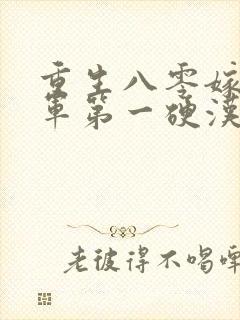 重生八零嫁
军第一硬漢
老彼得不喝啤